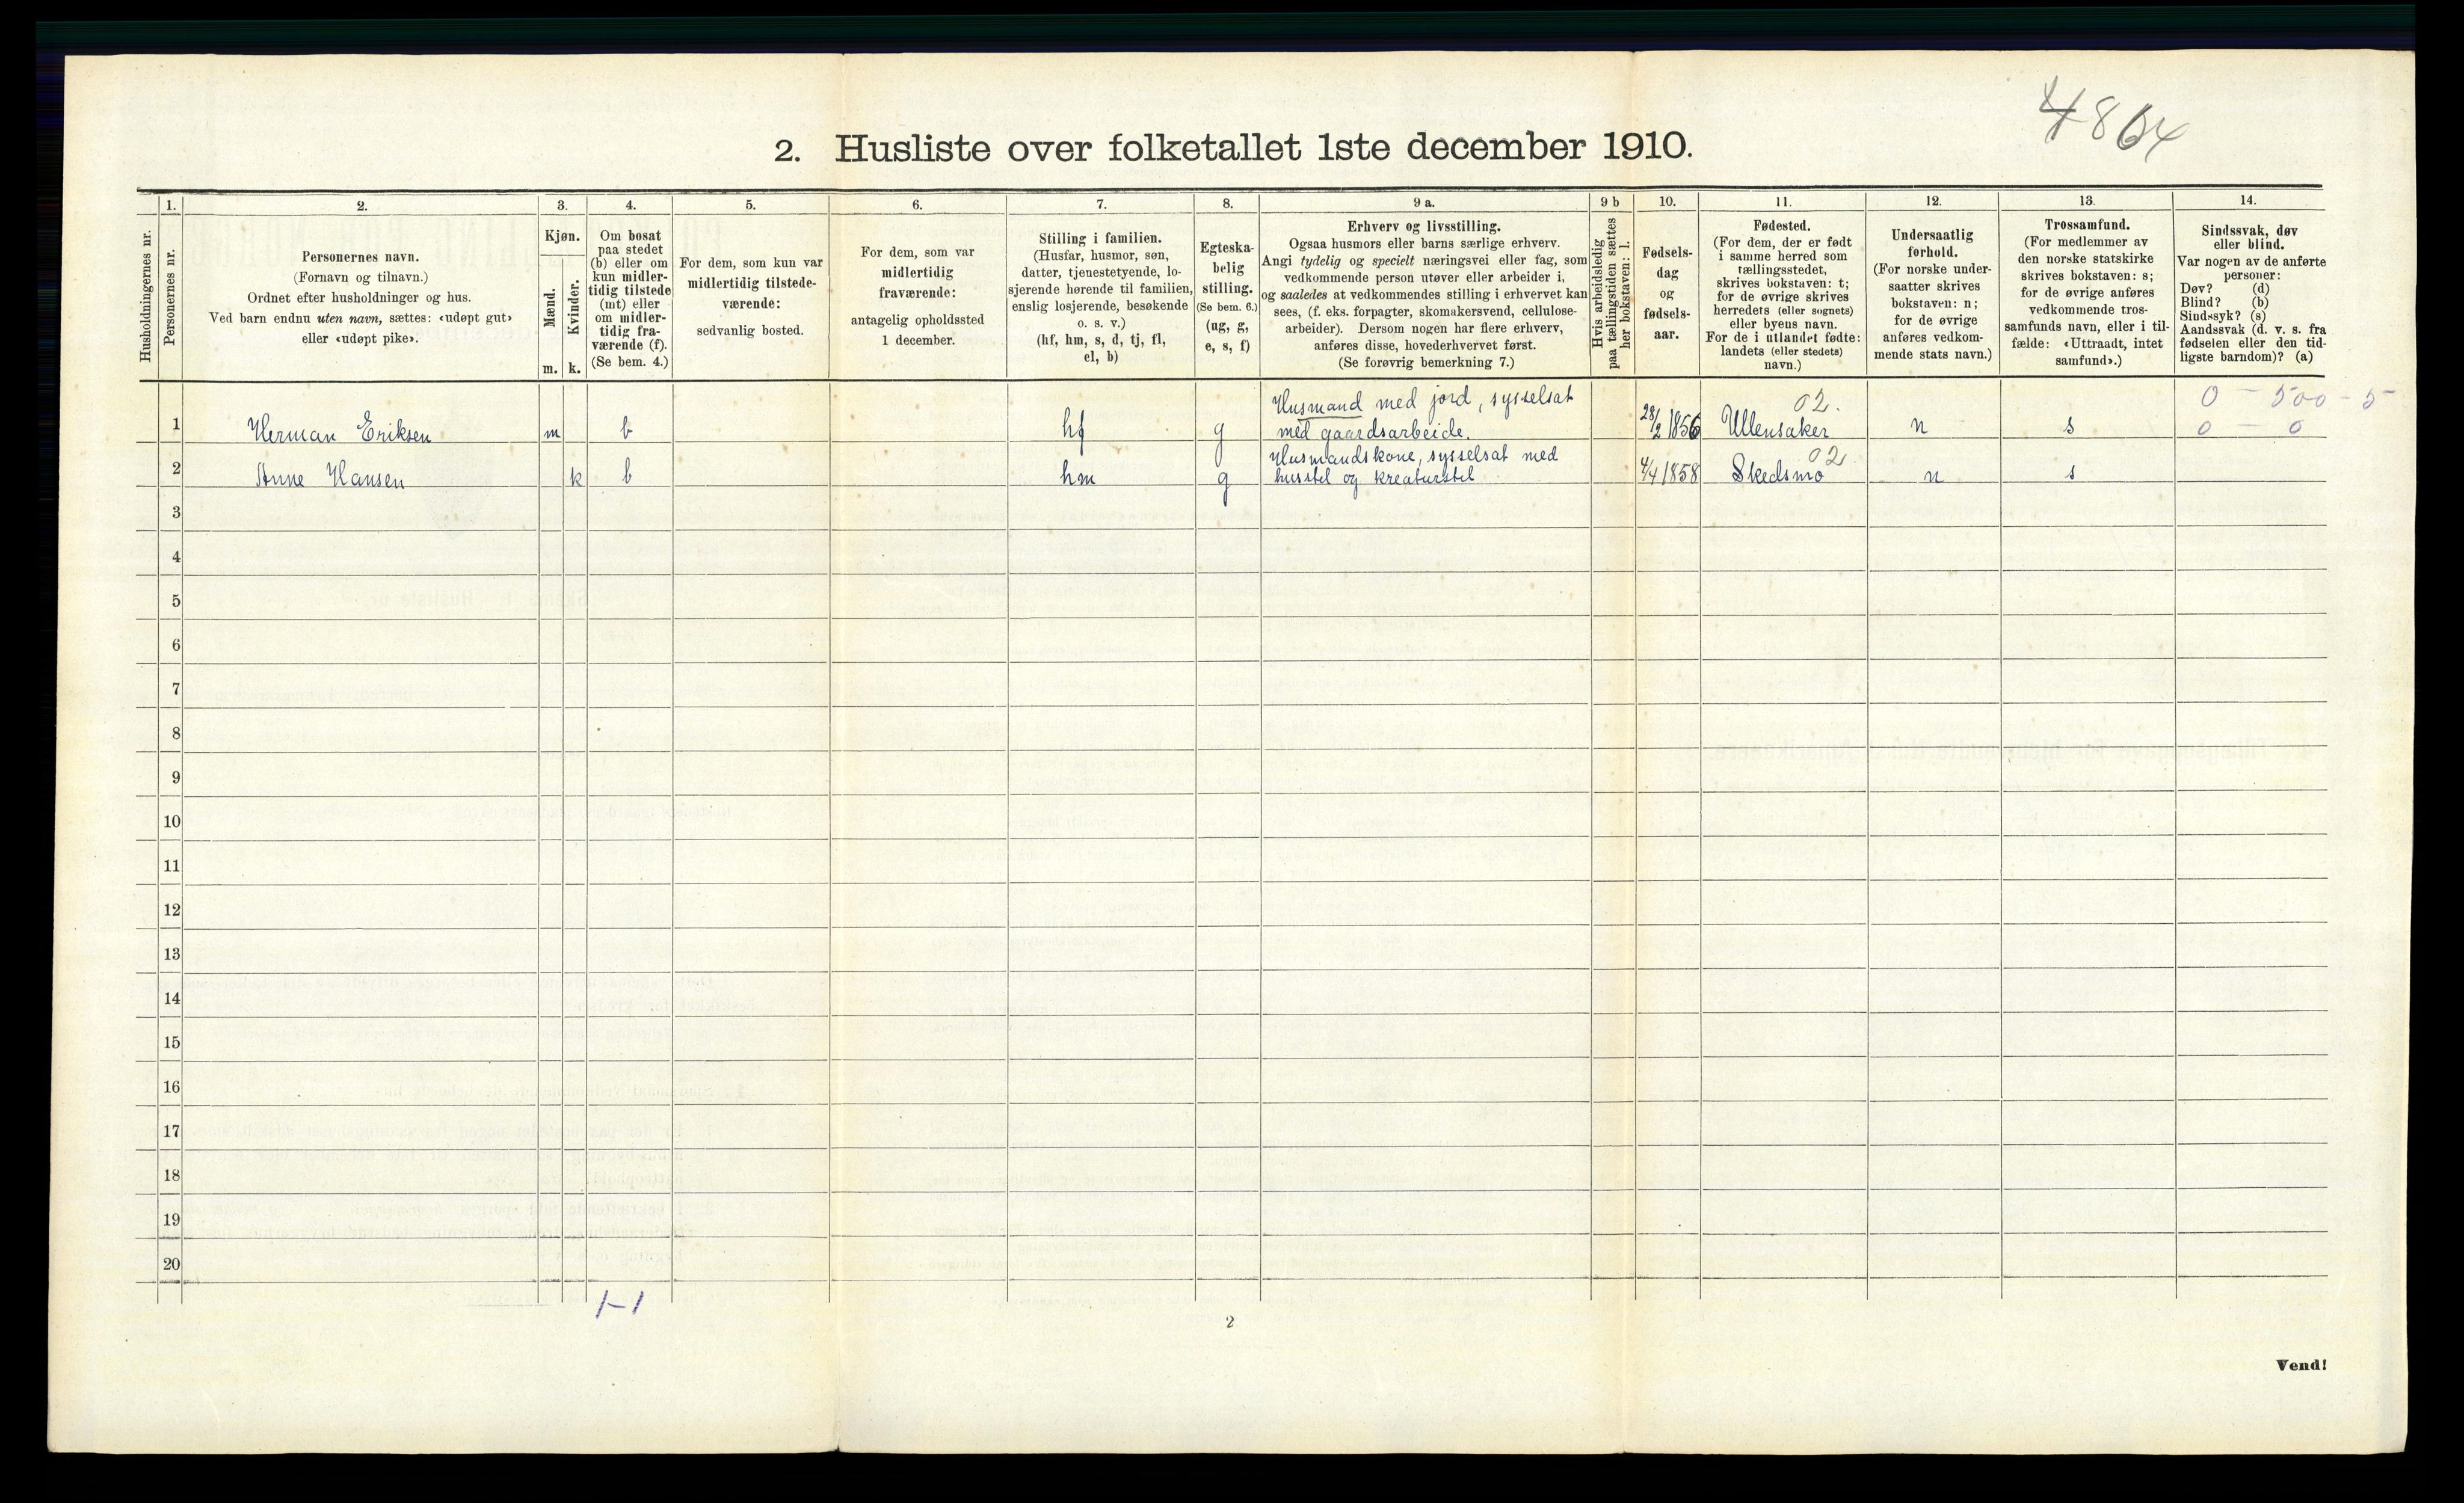 2. Husliste over folketallet 1ste december 1910.
Husholdningernes nr.
1.
Personernes nr.
2.
Personernes navn.
(Fornavn og tilnavn.)
Ordnet efter husholdninger og hus.
Ved barn endnu uten navn, sættes: «udøpt gut»
eller «udøpt pike».
3.
Kjøn.
Mænd.
Kvinder.
m. k.
4.
Om bosat
paa stedet
(b) eller om
kun midler-
tidig tilstede
(mt) eller
om midler-
tidig fra-
værende (f).
(Se bem. 4.)
5.
For dem, som kun var
midlertidig tilstede-
værende:
sedvanlig bosted.
6.
For dem, som var
midlertidig
fraværende:
antagelig opholdssted
1 december.
7.
Stilling i familien.
(Husfar, husmor, søn,
datter, tjenestetyende, lo-
sjerende hørende til familien,
enslig losjerende, besøkende
o. s. v.)
(hf, hm, s, d, tj, fl,
el, b)
8.
Egteska-
belig
stilling.
(Se bem. 6.)
(ug, g,
e, s, f)
9 a.
Erhverv og livsstilling.
Ogsaa husmors eller barns særlige erhverv.
Angi tydelig og specielt næringsvei eller fag, som
vedkommende person utøver eller arbeider i,
og saaledes at vedkommendes stilling i erhvervet kan
sees, (f. eks. forpagter, skomakersvend, cellulose-
arbeider). Dersom nogen har flere erhverv,
anføres disse, hovederhvervet først.
(Se forøvrig bemerkning 7.)
9 b
Hvis arbeidsledig
paa tællingstiden sættes
her bokstaven: l.
10.
Fødsels-
dag
og
fødsels-
aar.
11.
Fødested.
(For dem, der er født
i samme herred som
tællingsstedet,
skrives bokstaven: t;
for de øvrige skrives
herredets (eller sognets)
eller byens navn.
For de i utlandet fødte:
landets (eller stedets)
navn.)
12.
Undersaatlig
forhold.
(For norske under-
saatter skrives
bokstaven: n;
for de øvrige
anføres vedkom-
mende stats navn.)
13.
Trossamfund.
(For medlemmer av
den norske statskirke
skrives bokstaven: s;
for de øvrige anføres
vedkommende tros-
samfunds navn, eller i til-
fælde: «Uttraadt, intet
samfund».)
14.
Sindssvak, døv
eller blind.
Var nogen av de anførte
personer:
Døv? (d)
Blind? (b)
Sindssyk? (s)
Aandssvak (d. v. s. fra
fødselen eller den tid-
ligste barndom)? (a)
Husmand med jord, sysselsat 02. 0 - 500 - 5
1 Herman Eriksen m b hf g med gaardsarbeide. 28/2 1856 Ullensaker n s 0 - 0
Husmandskone, sysselsat med 02
2 Anne Hansen k b hm g husstel og kreaturstel 4/4 1858 Skedsmo n s
3
4
5
6
7
8
9
10
11
12
13
14
15
16
17
18
19
20
1-1
2
Vend!